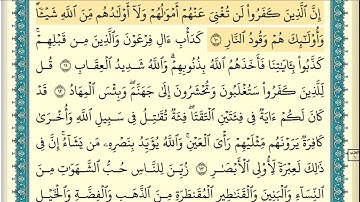 إِنَّ ٱلَّذِينَ كَفَرُوا۟ لَن تُغْنِىَ عَنْهُمْ أَمْوَٰلُهُمْ وَلَآ أَوْلَٰدُهُم مِّنَ ٱللَّهِ شَيْـًٔا
وَأُو۟لَٰٓئِكَ هُمْ وَقُودُ ٱلنَّارِ ١٠ كَدَأْبِ ءَالِ فِرْعَوْنَ وَٱلَّذِينَ مِن قَبْلِهِمْ
كَذَّبُوا۟ بِـَٔايَٰتِنَا فَأَخَذَهُمُ ٱللَّهُ بِذُنُوبِهِمْ وَٱللَّهُ شَدِيدُ ٱلْعِقَابِ ١١ قُل
لِّلَّذِينَ كَفَرُوا۟ سَتُغْلَبُونَ وَتُحْشَرُونَ إِلَىٰ جَهَنَّمَ وَبِئْسَ ٱلْمِهَادُ ١٢ قَدْ
كَانَ لَكُمْ ءَايَةٌ فِى فِئَتَيْنِ ٱلْتَقَتَا فِئَةٌ تُقَٰتِلُ فِى سَبِيلِ ٱللَّهِ وَأُخْرَىٰ
كَافِرَةٌ يَرَوْنَهُم مِّثْلَيْهِمْ رَأْىَ ٱلْعَيْنِ وَٱللَّهُ يُؤَيِّدُ بِنَصْرِهِۦ مَن يَشَآءُ إِنَّ فِى
ذَٰلِكَ لَعِبْرَةً لِّأُو۟لِى ٱلْأَبْصَٰرِ ١٣ زُيِّنَ لِلنَّاسِ حُبُّ ٱلشَّهَوَٰتِ مِنَ
ٱلنِّسَآءِ وَٱلْبَنِينَ وَٱلْقَنَٰطِيرِ ٱلْمُقَنطَرَةِ مِنَ ٱلذَّهَبِ وَٱلْفِضَّةِ وَٱلْخَيْلِ